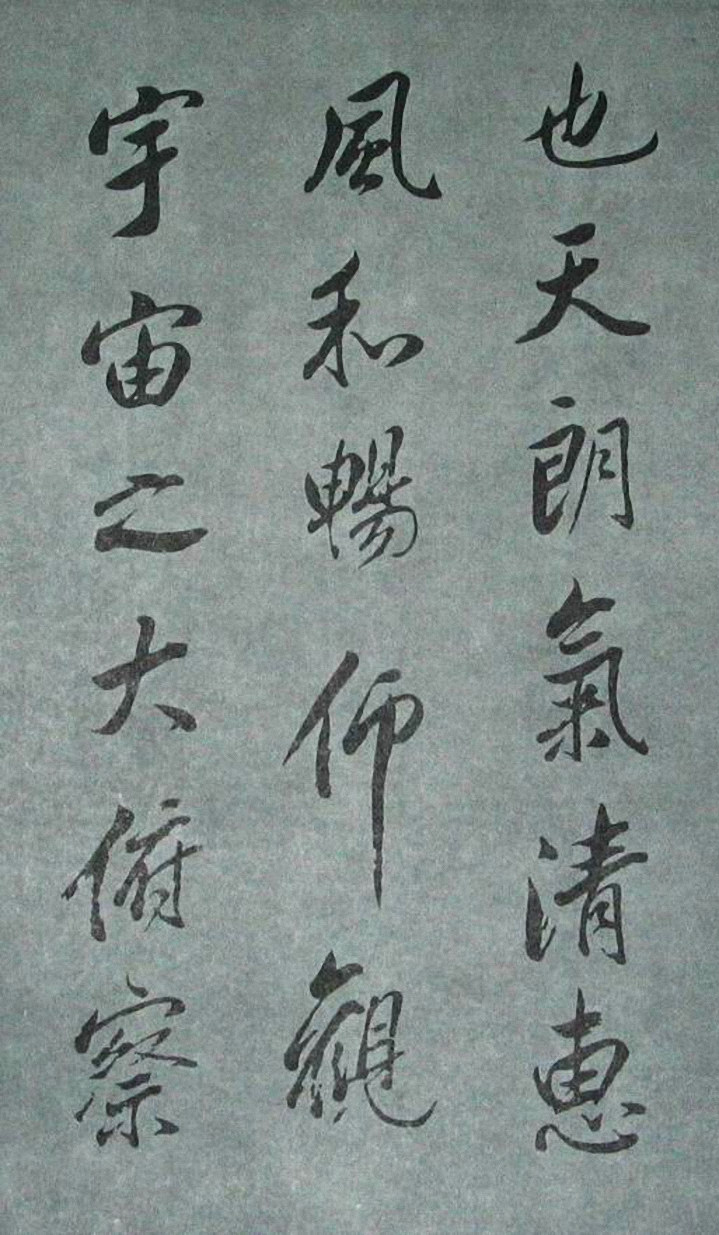 也天朗氣清惠
風和暢仰觀
宇宙之大俯察